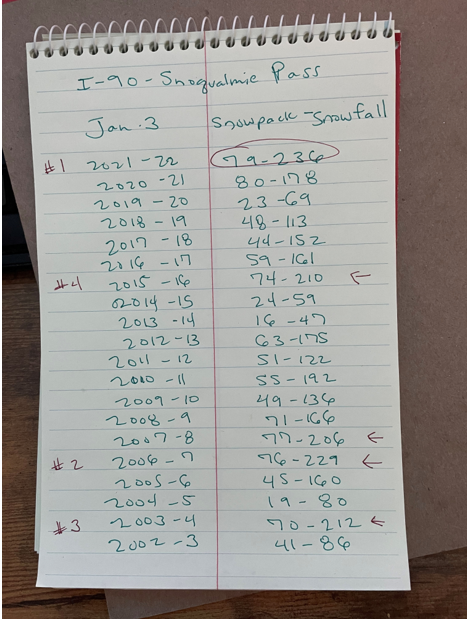 I-90 - Snoqualmie Pass
Jan. 3 Snowpack - Snowfall
#1 2021-22 79-236
2020-21 80-178
2019-20 23-69
2018-19 48-113
2017-18 44-152
2016-17 59-161
#4 2015-16 74-210 ←
2014-15 24-59
2013-14 16-47
2012-13 63-175
2011-12 51-122
2010-11 55-192
2009-10 49-136
2008-9 71-166
2007-8 77-206 ←
#2 2006-7 76-229 ←
2005-6 45-160
2004-5 19-80
#3 2003-4 70-212 ←
2002-3 41-86